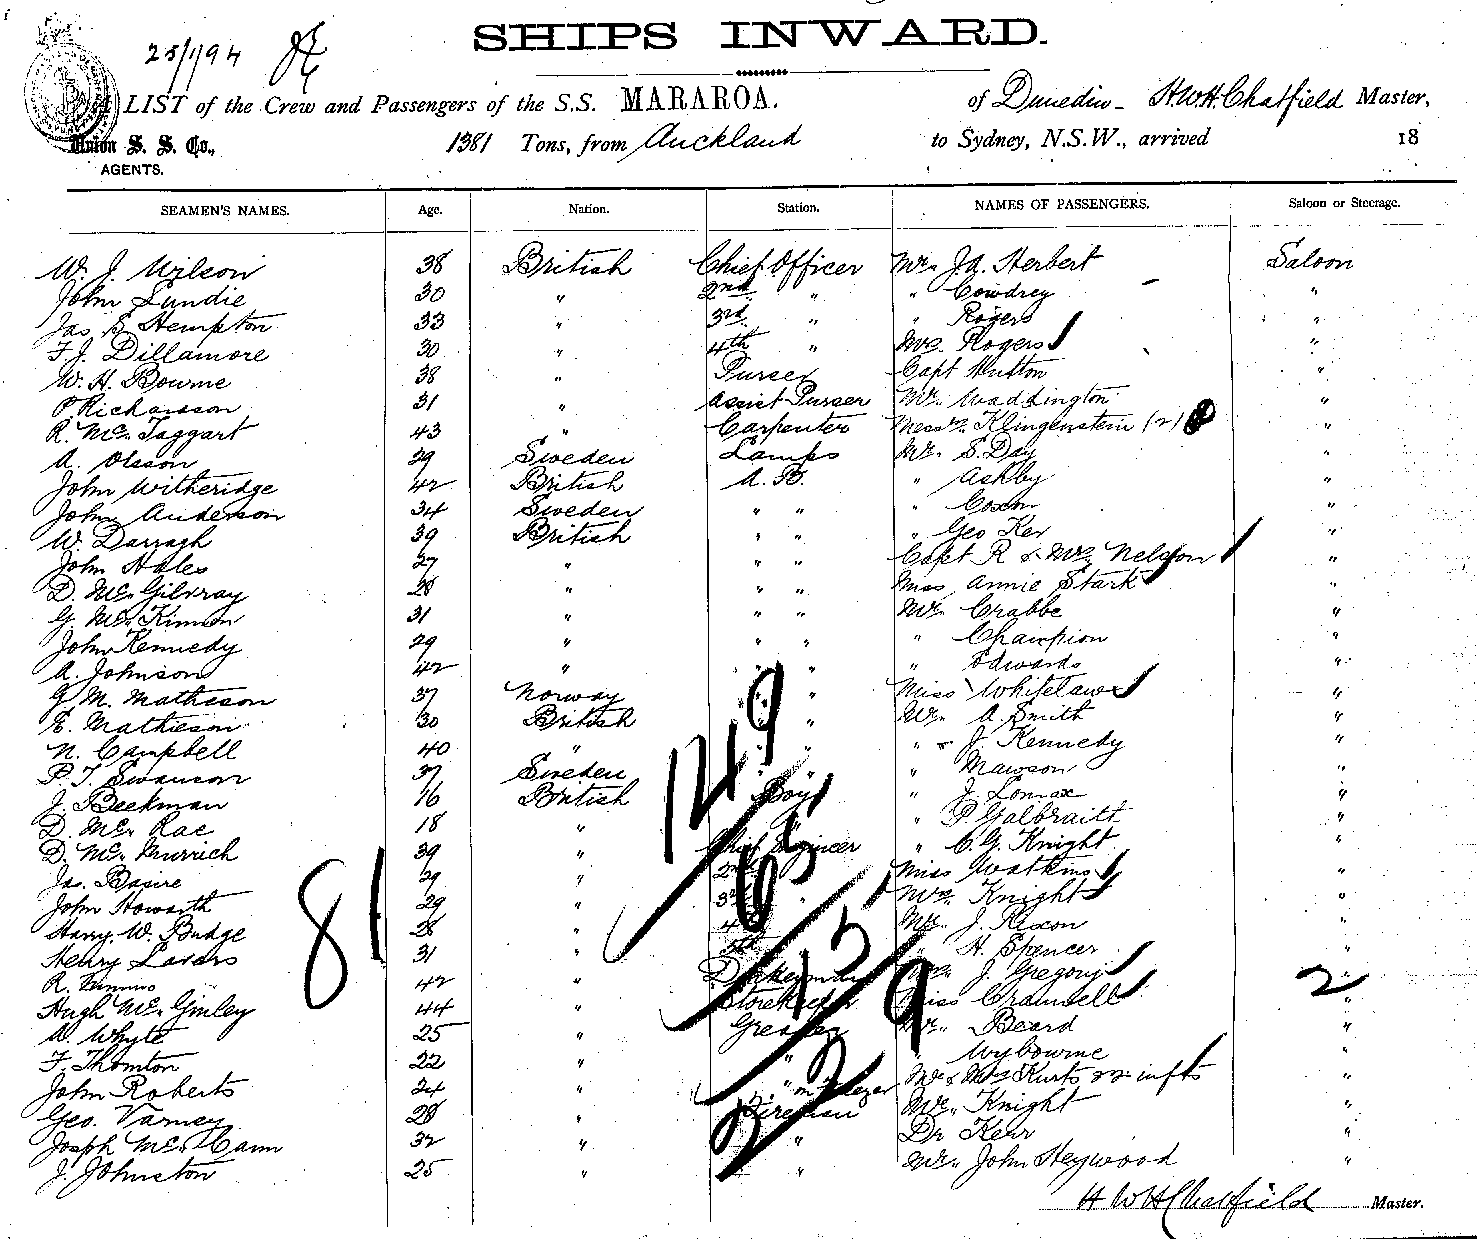 SHIPS INWARD.
25/1/94
A LIST of the Crew and Passengers of the S.S. MARAROA. of Dunedin - H.W.H. Chatfield Master,
Union S. S. Co., 1381 Tons, from Auckland to Sydney, N.S.W., arrived 18
AGENTS.
SEAMEN'S NAMES. Age. Nation. Station. NAMES OF PASSENGERS. Saloon or Steerage.
W. J. Wilson 38 British Chief Officer Mr. J.A. Herbert Saloon
John Lundie 30 " 2nd " " Cowdrey "
Jas. Hempton 33 " 3rd " " Rogers "
F.J. Dillamore 30 " 4th " Mrs. Rogers "
W. H. Bourne 38 " Purser Capt Hutton "
Richardson 31 " Assist Purser Mr. Waddington "
R. Mc. Taggart 43 " Carpenter Messrs. Klingenstein (2) "
A. Olsson 29 Sweden Lamps Mr. S. Day "
John Witheridge 42 British A. B. " Ashby "
John Anderson 34 Sweden " " " Coxon "
W. Darragh 39 British " " " Geo Ker "
John Hales 27 " " " Capt R & Mrs Nelson "
D. Mc. Gilvray 28 " " " Miss Annie Stark "
G. Mc. Kinnon 31 " " " Mr. Crabbe "
John Kennedy 29 " " " " Champion "
A. Johnson 42 " " " " Edwards "
G. M. Matheson 37 Norway " " Miss Whitelaw "
E. Mathieson 30 British " " Mr. A. Smith "
N. Campbell 40 " " " " J. Kennedy "
P. T. Swanson 37 Sweden " " " Mawson "
J. Beekman 16 British Boy " J. Lomax "
D. Mc. Rae 18 " " " P. Galbraith "
D. Mc. Murrich 39 " Chief Engineer " C. G. Knight "
Jas. Basire 29 " 2nd " Miss Watkins "
John Howarth 29 " 3rd " Mrs. Knight "
Harry. W. Budge 28 " 4th " Mr. J. Rixon "
Henry Lavers 31 " 5th " " H. Spencer "
R. 42 " J. Gregory "
Hugh Mc. Ginley 44 " Storekeeper Miss Cramsell "
W. Whyte 25 " Greaser Mr. Beard "
F. Thornton 22 " " " Wybourne "
John Roberts 24 " " Mr & Mrs Kurts & 2 infts "
Geo. Varney 28 " Fireman Mr. Knight "
Joseph Mc. Cann 32 " " Dr Kerr "
J. Johnston 25 " " Mr. John Heywood "
81
149
65
15
9
2
2
H W H Chatfield Master.